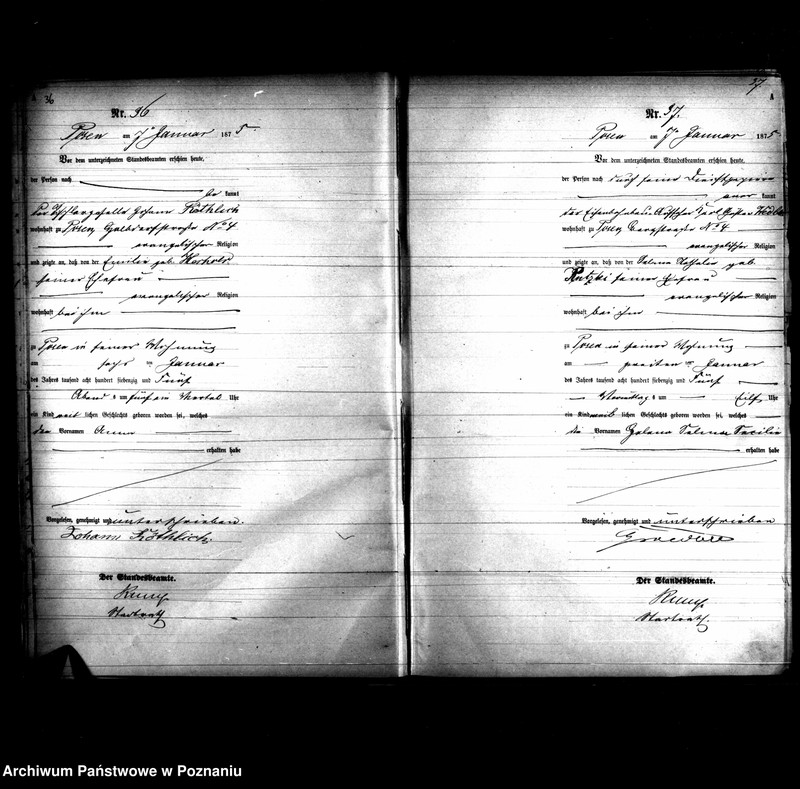 A 36
Nr. 36
Posen am 7 Januar 1875
Vor dem unterzeichneten Standesbeamten erschien heute,
der Person nach
be kannt
Johann Köthlich
wohnhaft zu Posen No 4
evangelischer Religion
und zeigte an, daß von der Emilie geb.
seiner Ehefrau
evangelischer Religion
wohnhaft bei ihm
zu Posen in seiner Wohnung
am sechs ten Januar
des Jahres tausend acht hundert siebenzig und Fünf
Abends um fünf ein Viertel Uhr
ein Kind weib lichen Geschlechts geboren worden sei, welches
den Vornamen Anna
erhalten habe
Vorgelesen, genehmigt und unterschrieben.
Johann Köthlich
Der Standesbeamte.
Stadtrath
37
A
Nr. 37.
Posen am 7 Januar 1875
Vor dem unterzeichneten Standesbeamten erschien heute,
der Person nach durch seine Dienstpapiere
kannt
der Eisenbahn Karl Gustav
wohnhaft zu Posen Bergstraße No 4
evangelischer Religion
und zeigte an, daß von der Selma geb.
seiner Ehefrau
evangelischer Religion
wohnhaft bei ihm
zu Posen in seiner Wohnung
am zweiten Januar
des Jahres tausend acht hundert siebenzig und Fünf
Vormittags um Elf Uhr
ein Kind weib lichen Geschlechts geboren worden sei, welches
die Vornamen Selma
erhalten habe
Vorgelesen, genehmigt und unterschrieben
Der Standesbeamte.
Stadtrath.
Archiwum Państwowe w Poznaniu